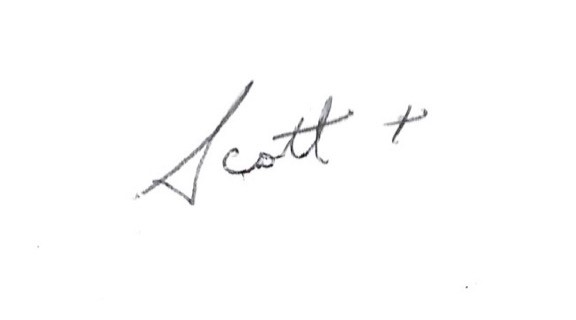 Scott +